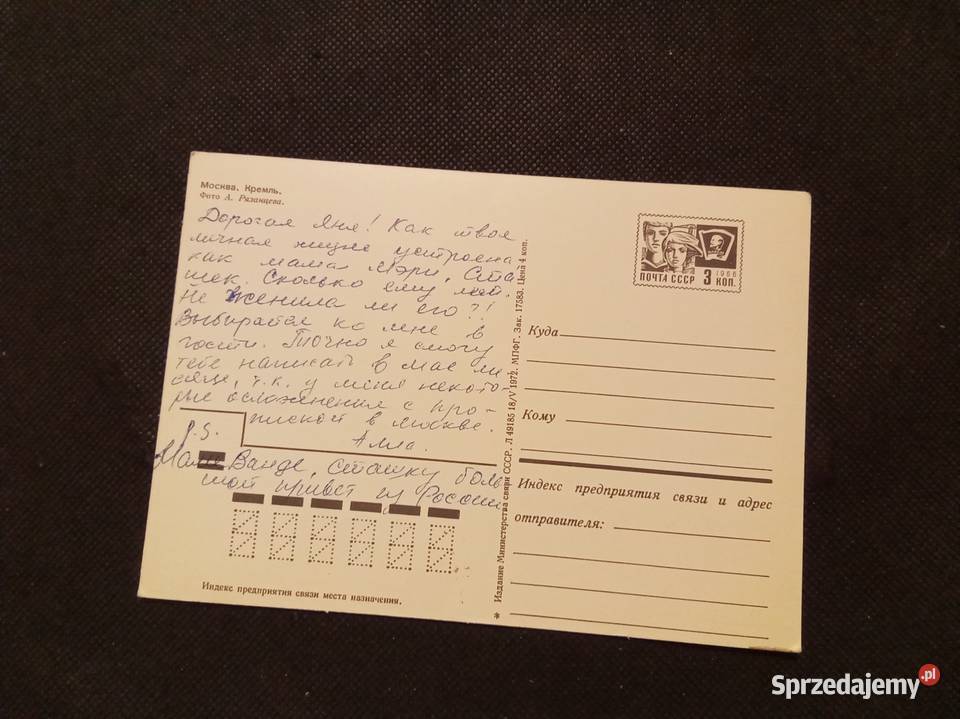 Москва. Кремль.
Фото А. Рязанцева.
Дорогая Яня! Как твоя
личная жизнь устроена
как мама Мэри, Ста
шек. Сколько ему лет.
Не женила ли его?!
Выбирайся ко мне в
гости. Точно я смогу
тебе написать в мае ме
сяце, т.к. у меня некото-
рые осложнения с про-
пиской в Москве.
Алла.
P.S.
Маме Ванде, Сташку боль
шой привет из России
Индекс предприятия связи места назначения.
* Издание Министерства связи СССР. Л 49185 18/V 1972. МПФГ. Зак. 17583. Цена 4 коп.
ПОЧТА СССР 3 КОП.
1966
Куда
Кому
Индекс предприятия связи и адрес
отправителя:
Sprzedajemy.pl